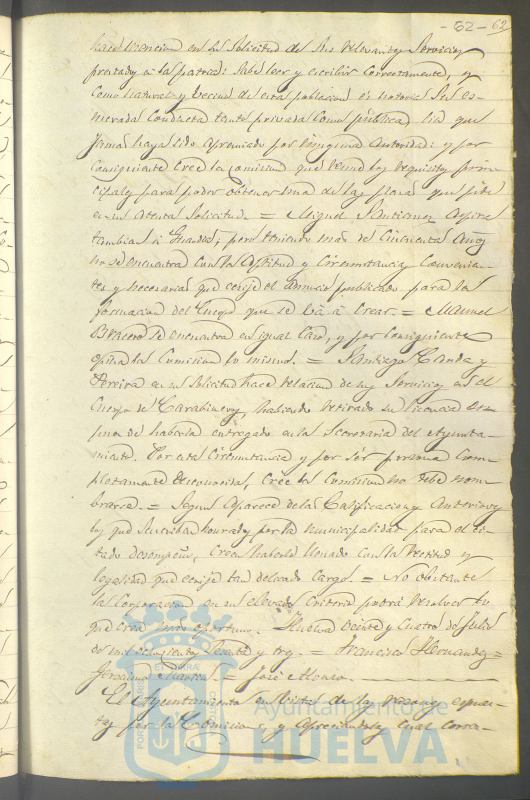 - 62 - 62
hace mencion en su Solicitud de sus relevantes Servicios
prestados a la patria: sabe leer y escribir correctamente, y
como natural y vecino de esta poblacion es notoria su es-
merada conducta tanto privada como publica sin que
jamas haya sido apremiado por ninguna Autoridad: y por
consiguiente cree la comision que reune los requisitos prin-
cipales para poder obtener una de las plazas que pide
en su atenta Solicitud. = Miguel Santiago aspira
tambien á Guardia; pero teniendo mas de cincuenta años
no se encuentra con la aptitud y circunstancias convenien-
tes y necesarias que ecsije el anuncio publicado para la
formacion del Cuerpo que se vá á crear. = Manuel
Bracero se encuentra en igual caso, y por consiguiente
opina la Comision lo mismo. = Santiago Canda y
Pereira en su Solicitud hace relacion de sus Servicios en el
Cuerpo de Carabineros, habiendo retirado su licencia des-
pues de haberla entregado en la Secretaria del Ayunta-
miento. Por esta circunstancia y por ser persona com-
pletamente desconocida, cree la Comision no debe nom-
brarse. = Segun aparece de las Calificaciones anteriores
los que suscriben honrados por la municipalidad para el ci-
tado desempeño, creen haberlo llenado con la rectitud y
legalidad que ecsije tan delicado cargo. = No obstante
la Corporacion en su elevado criterio podrá resolver lo
que crea mas oportuno. Huelva veinte y cuatro de Julio
de mil ochocientos sesenta y tres. = Francisco Hernandez =
Geronimo Martin. = José Alonso.
El Ayuntamiento en vista de las razones espues-
tas por la Comision, y apreciandolas cual corres-
Ayuntamiento de
HUELVA